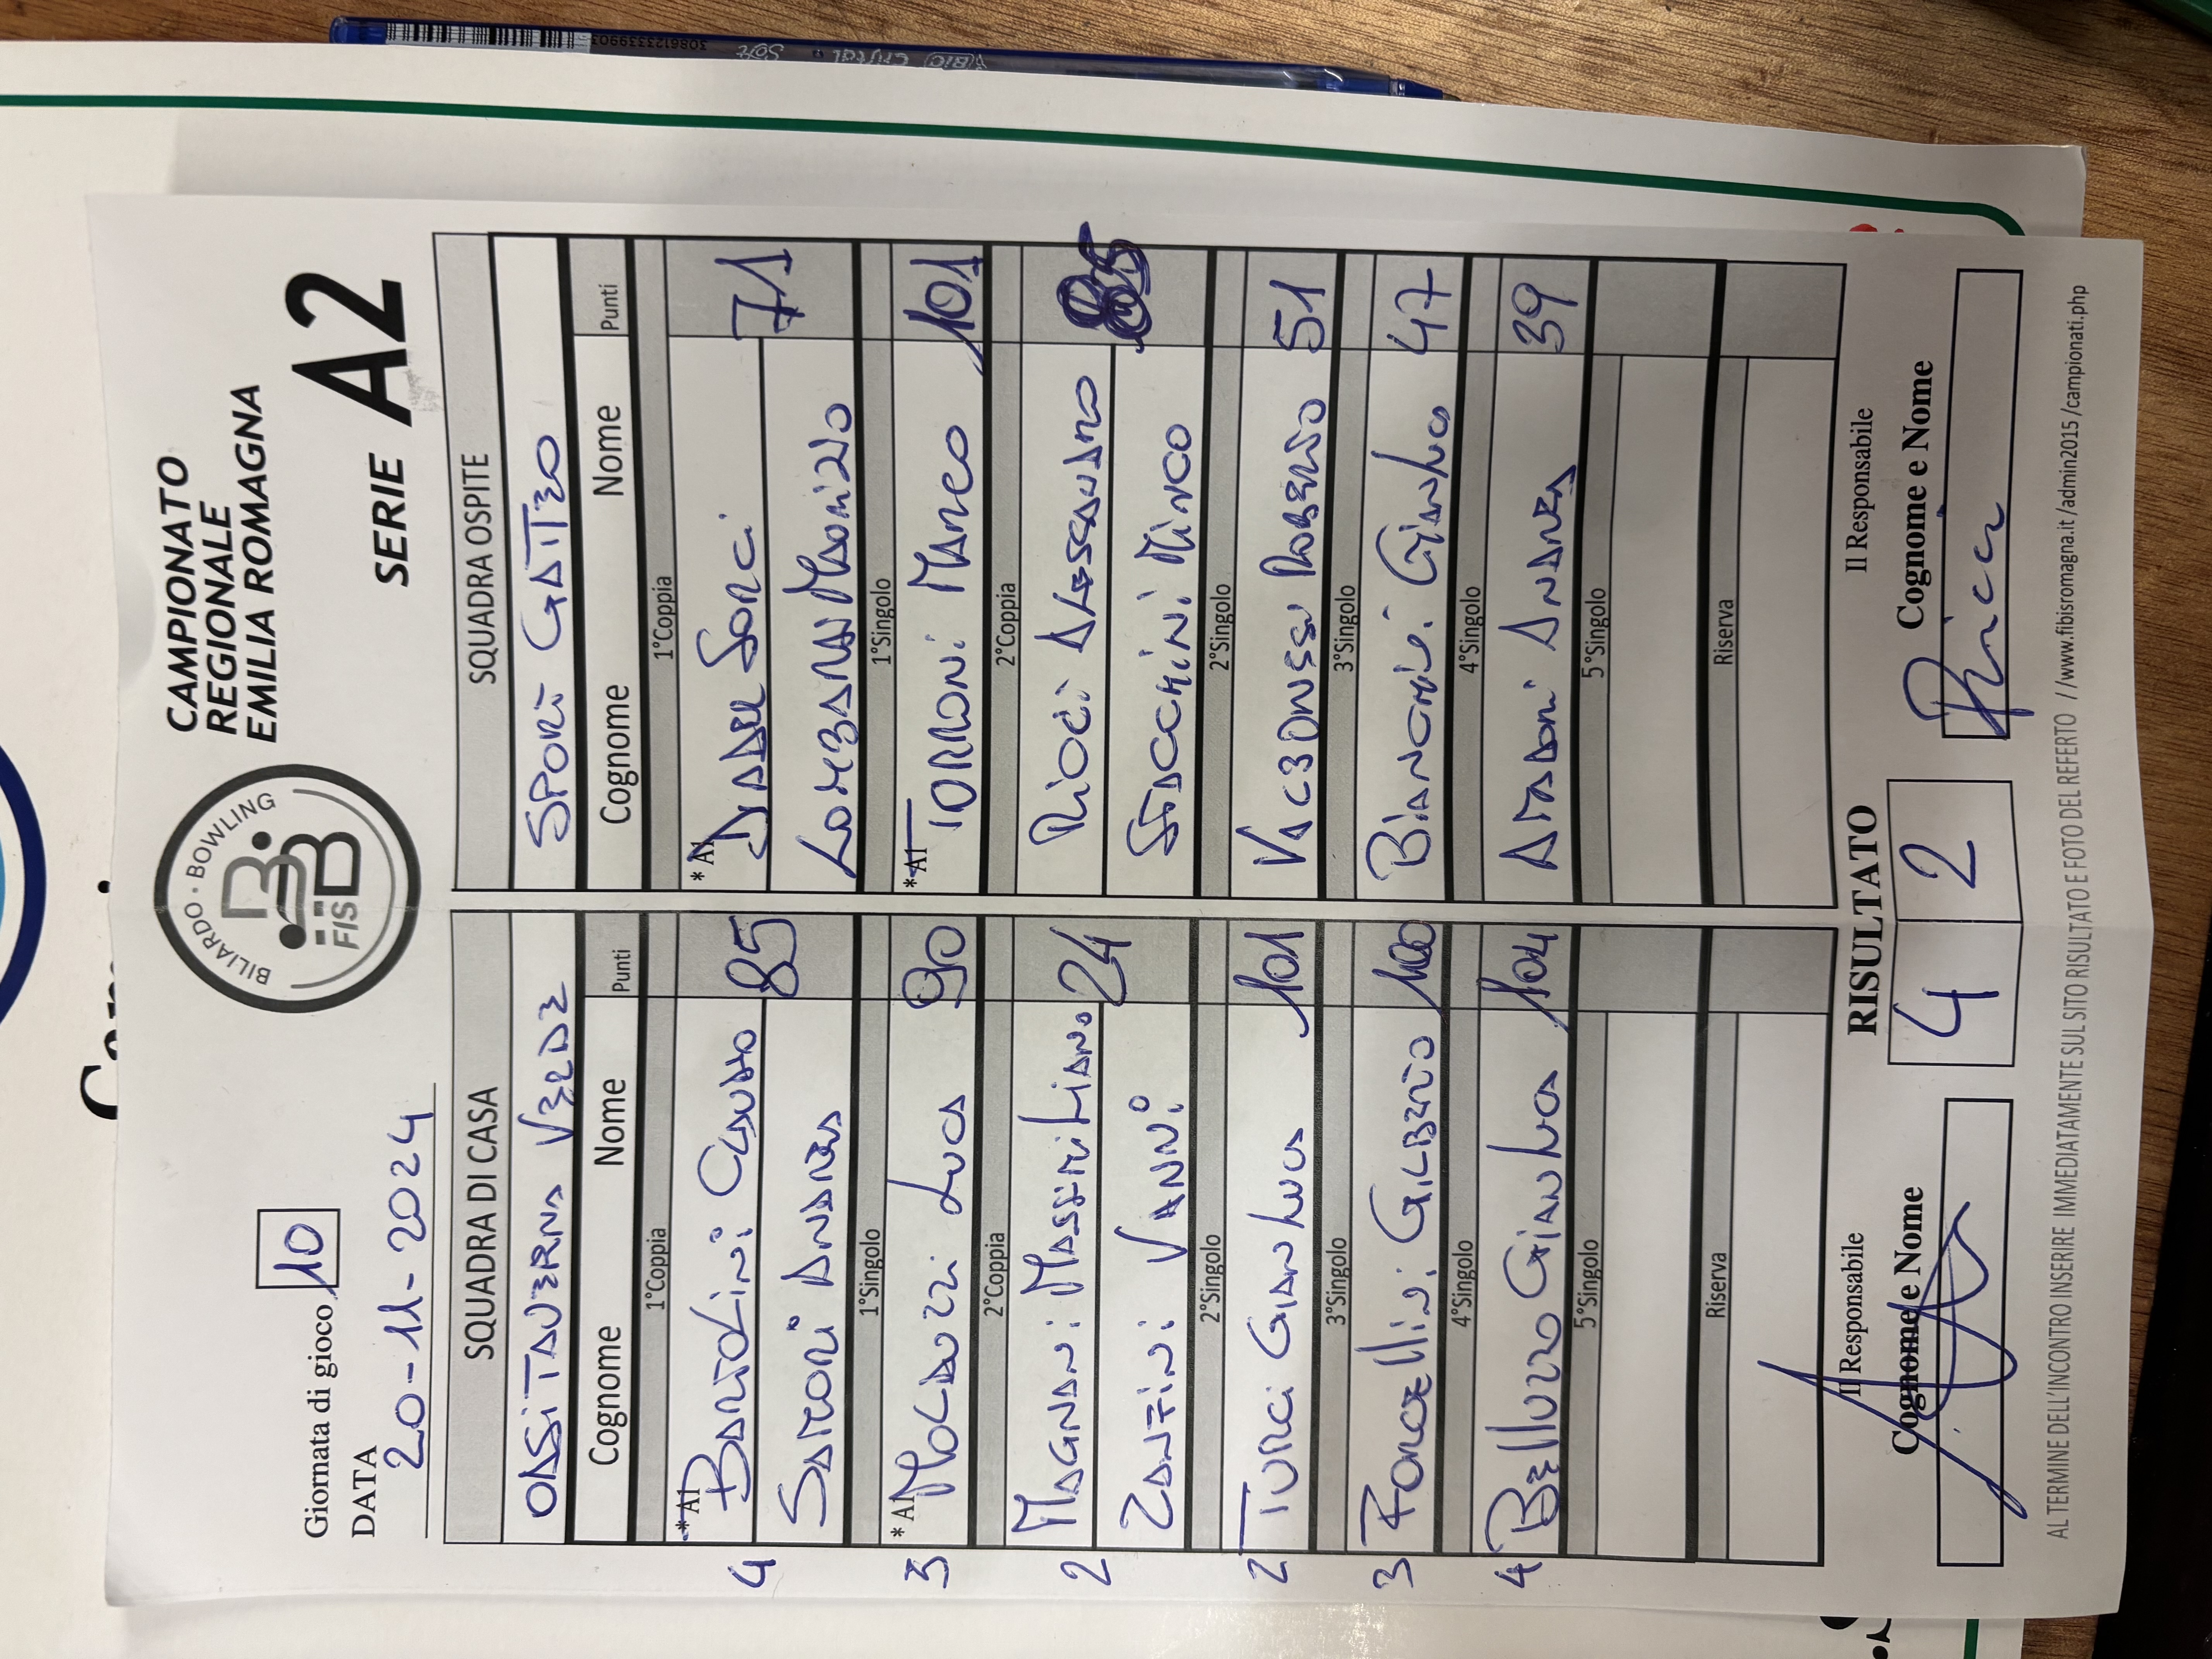 Giornata di gioco 10
DATA
20-11-2024
BILIARDO · BOWLING
FISBB
CAMPIONATO
REGIONALE
EMILIA ROMAGNA
SERIE A2
SQUADRA DI CASA
OASI TAVERNA VERDE
Cognome Nome Punti
1°Coppia
4 *A1 BARTOLINI CLAUDIO 85
SAMORI ANDREA
1°Singolo
3 *A1 MOLDUZZI LUCA 90
2°Coppia
2 MAGNANI MASSIMILIANO 24
ZANFINI VANNI
2°Singolo
2 TURCI GIANLUCA 101
3°Singolo
3 FORCELLINI GILBERTO 100
4°Singolo
4 BELLUZZO GIANLUCA 104
5°Singolo
Riserva
SQUADRA OSPITE
SPORT GATTEO
Cognome Nome Punti
1°Coppia
*A1 71
LOMBARDI MAURIZIO
1°Singolo
*A1 TORRONI MARCO 101
2°Coppia
RICCI ALESSANDRO 85
STACCHINI MIRCO
2°Singolo
ROBERTO 51
3°Singolo
GIANLUCA 47
4°Singolo
AMADORI ANDREA 39
5°Singolo
Riserva
Il Responsabile
Cognome e Nome
RISULTATO
4 2
Il Responsabile
Cognome e Nome
AL TERMINE DELL'INCONTRO INSERIRE IMMEDIATAMENTE SUL SITO RISULTATO E FOTO DEL REFERTO //www.fibisromagna.it /admin2015 /campionati.php
BIC Cristal Soft
3086123339903